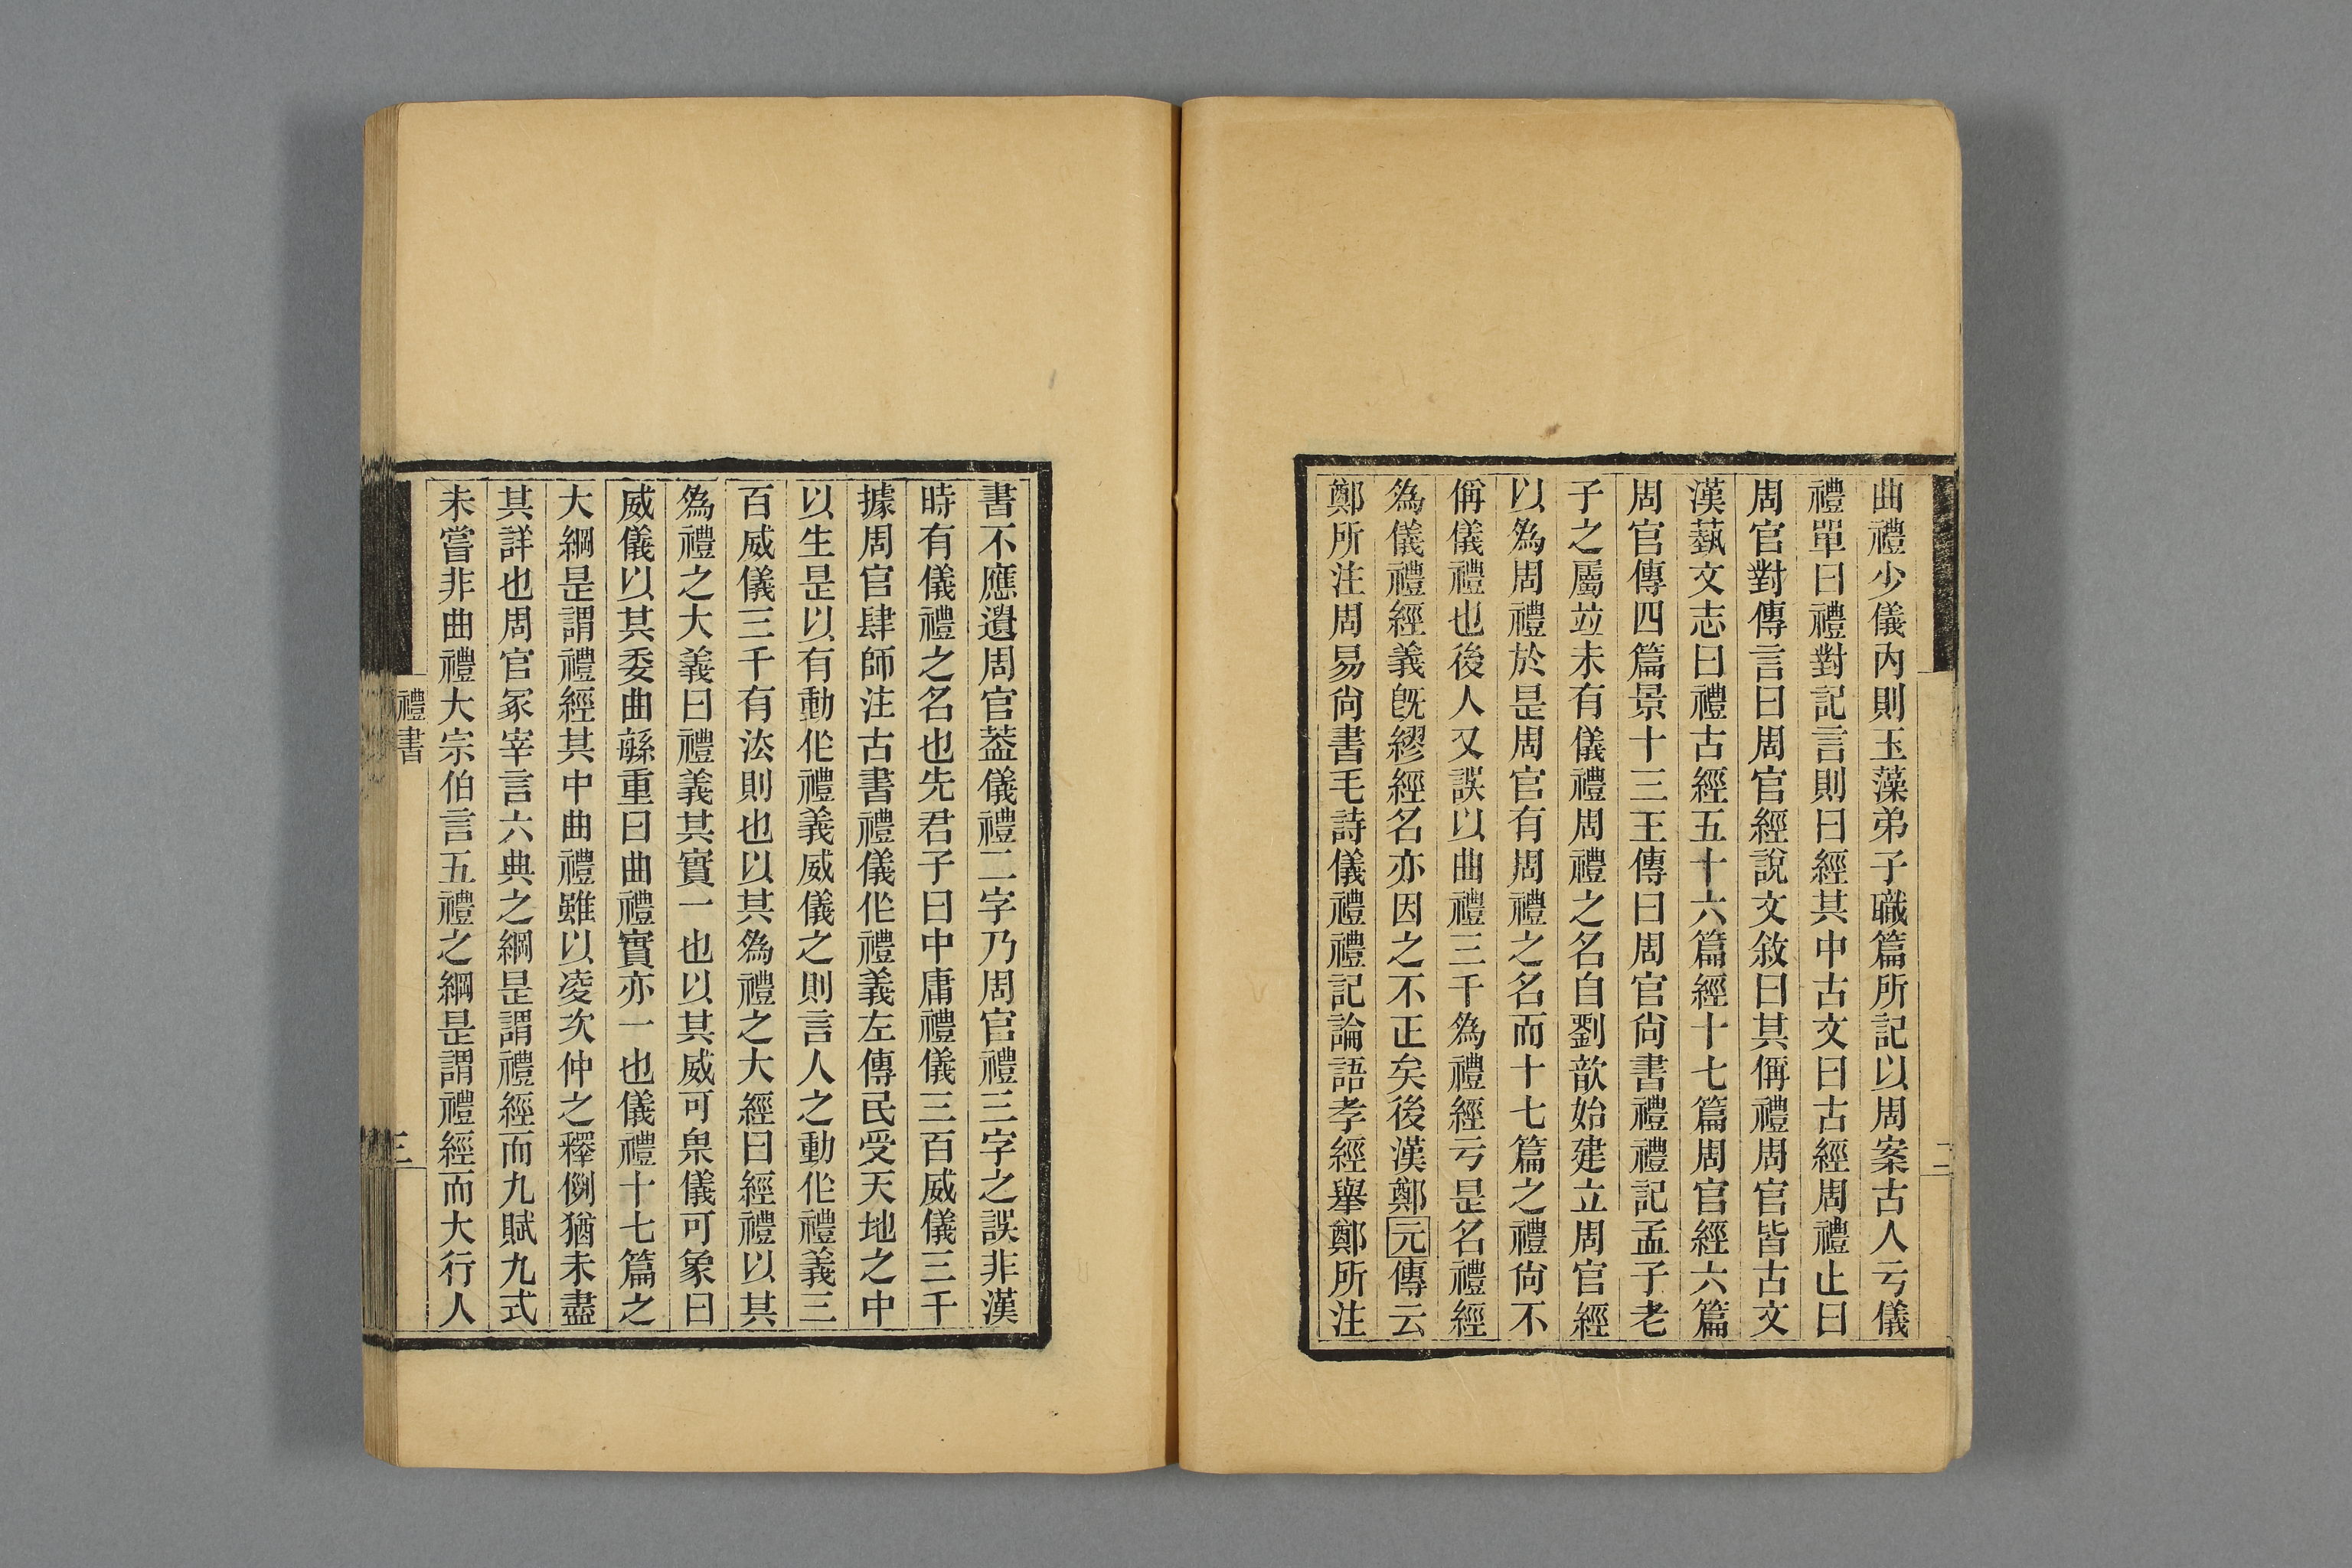 曲禮少儀内則玉藻弟子職篇所記以周案古人亏儀
禮單曰禮對記言則曰經其中古文曰古經周禮止曰
周官對傳言曰周官經說文敘曰其偁禮周官皆古文
漢蓺文志曰禮古經五十六篇經十七篇周官經六篇
周官傳四篇景十三王傳曰周官尙書禮禮記孟子老
子之屬竝未有儀禮周禮之名自劉歆始建立周官經
以爲周禮於是周官有周禮之名而十七篇之禮尙不
偁儀禮也後人又誤以曲禮三千爲禮經亏是名禮經
爲儀禮經義旣繆經名亦因之不正矣後漢鄭元傳云
鄭所注周易尙書毛詩儀禮禮記論語孝經舉鄭所注
二
書不應遺周官葢儀禮二字乃周官禮三字之誤非漢
時有儀禮之名也先君子曰中庸禮儀三百威儀三千
據周官肆師注古書禮儀作禮義左傳民受天地之中
以生是以有動作禮義威儀之則言人之動作禮義三
百威儀三千有法則也以其爲禮之大經曰經禮以其
爲禮之大義曰禮義其實一也以其威可畏儀可象曰
威儀以其委曲緐重曰曲禮實亦一也儀禮十七篇之
大綱是謂禮經其中曲禮雖以凌次仲之釋例猶未盡
其詳也周官冢宰言六典之綱是謂禮經而九賦九式
未嘗非曲禮大宗伯言五禮之綱是謂禮經而大行人
禮書
三